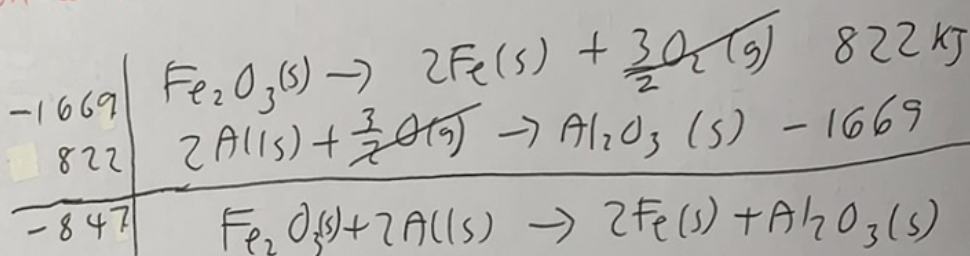 -1669 | Fe₂O₃(s) → 2Fe(s) + 3/2 O₂(g) 822 KJ
822 | 2Al(s) + 3/2 O(g) → Al₂O₃ (s) - 1669
-847 | Fe₂O₃(s) + 2Al(s) → 2Fe(s) + Al₂O₃(s)